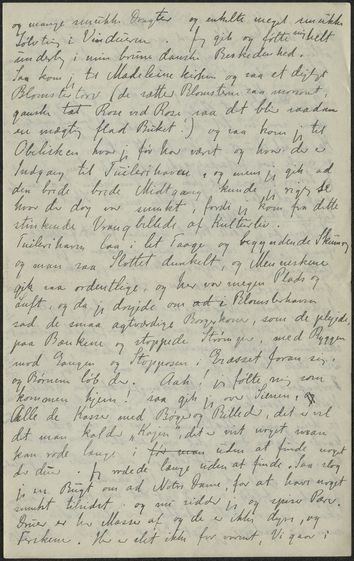 og mange smukke Dragter og enkelte meget smukke
Ting i Vinduerne. Jeg gik og følte mig helt
underlig i min brune danske Beskedenhed.
Saa kom jeg til Madeleine kirken og saa et dejligt
Blomstertorv (de sætter Blomsterne saa morsomt,
ganske tæt Rose ved Rose saa det bliver saadan
en mægtig flad Buket.) og saa kom jeg til
Obelisken hvor jeg før har været og hvor der er
Indgang til Tuilerihaven, og men jeg gik ad
den brede brede Midtgang kunde jeg rigtig se
hvor der dog var smukt, fordi jeg kom fra dette
stinkende Vrangbillede af Kulturliv.
Tuilerihaven laa i let Taage og begyndende Skumring
og man saa Slottet dunkelt, og Menneskene
gik saa ordentlige, og her var megen Plads og
Luft, og da jeg drejede om ad i Blomsterhaven
sad de smaa agtværdige Borgerkoner, som de plejede
paa Bænkene og stoppede Strømper, med Ryggen
mod Gangen og Stopposen i Græsset foran sig.
og Børnene løb der. Aah! jeg følte mig som
kommen hjem! saa gik jeg over Seinen, og
Alle de Kasser med Bøger og Billeder, det er vel
det man kalder "Kajen", det er vist noget man
kan rode længe i før man uden at finde noget
der duer. Jeg rodede længe uden at finde. Saa slog
jeg en Bugt om ad Notre Dame, for at have noget
smukt tilsidst og nu sidder jeg og spiser Pære.
Druer er her Masser af og de er ikke dyre, og
Ferskene. Her er slet ikke for varmt, Vi gaar i